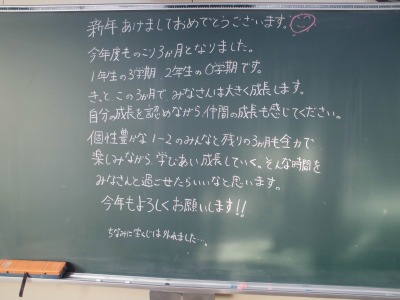 新年あけましておめでとうございます。
今年度ものこり3か月となりました。
1年生の3学期 2年生の0学期です。
きっと、この3か月で みなさんは大きく成長します。
自分の成長を認めながら 仲間の成長も感じてください。
個性豊かな1-2のみんなと残りの3か月も全力で
楽しみながら、学びあい成長していく。そんな時間を
みなさんと過ごせたらいいなと思います。
今年もよろしくお願いします!!
ちなみに宝くじは外れました…。